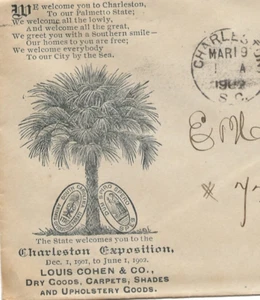 WE welcome you to Charleston,
To our Palmetto State;
We welcome all the lowly,
And welcome all the great,
We greet you with a Southern smile—
Our homes to you are free;
We welcome everybody
To our City by the Sea.
CHARLES
MAR 19
A
1902
S.C.
The State welcomes you to the
Charleston Exposition,
Dec. 1, 1901, to June 1, 1902.
LOUIS COHEN & CO.,
DRY GOODS, CARPETS, SHADES
AND UPHOLSTERY GOODS.